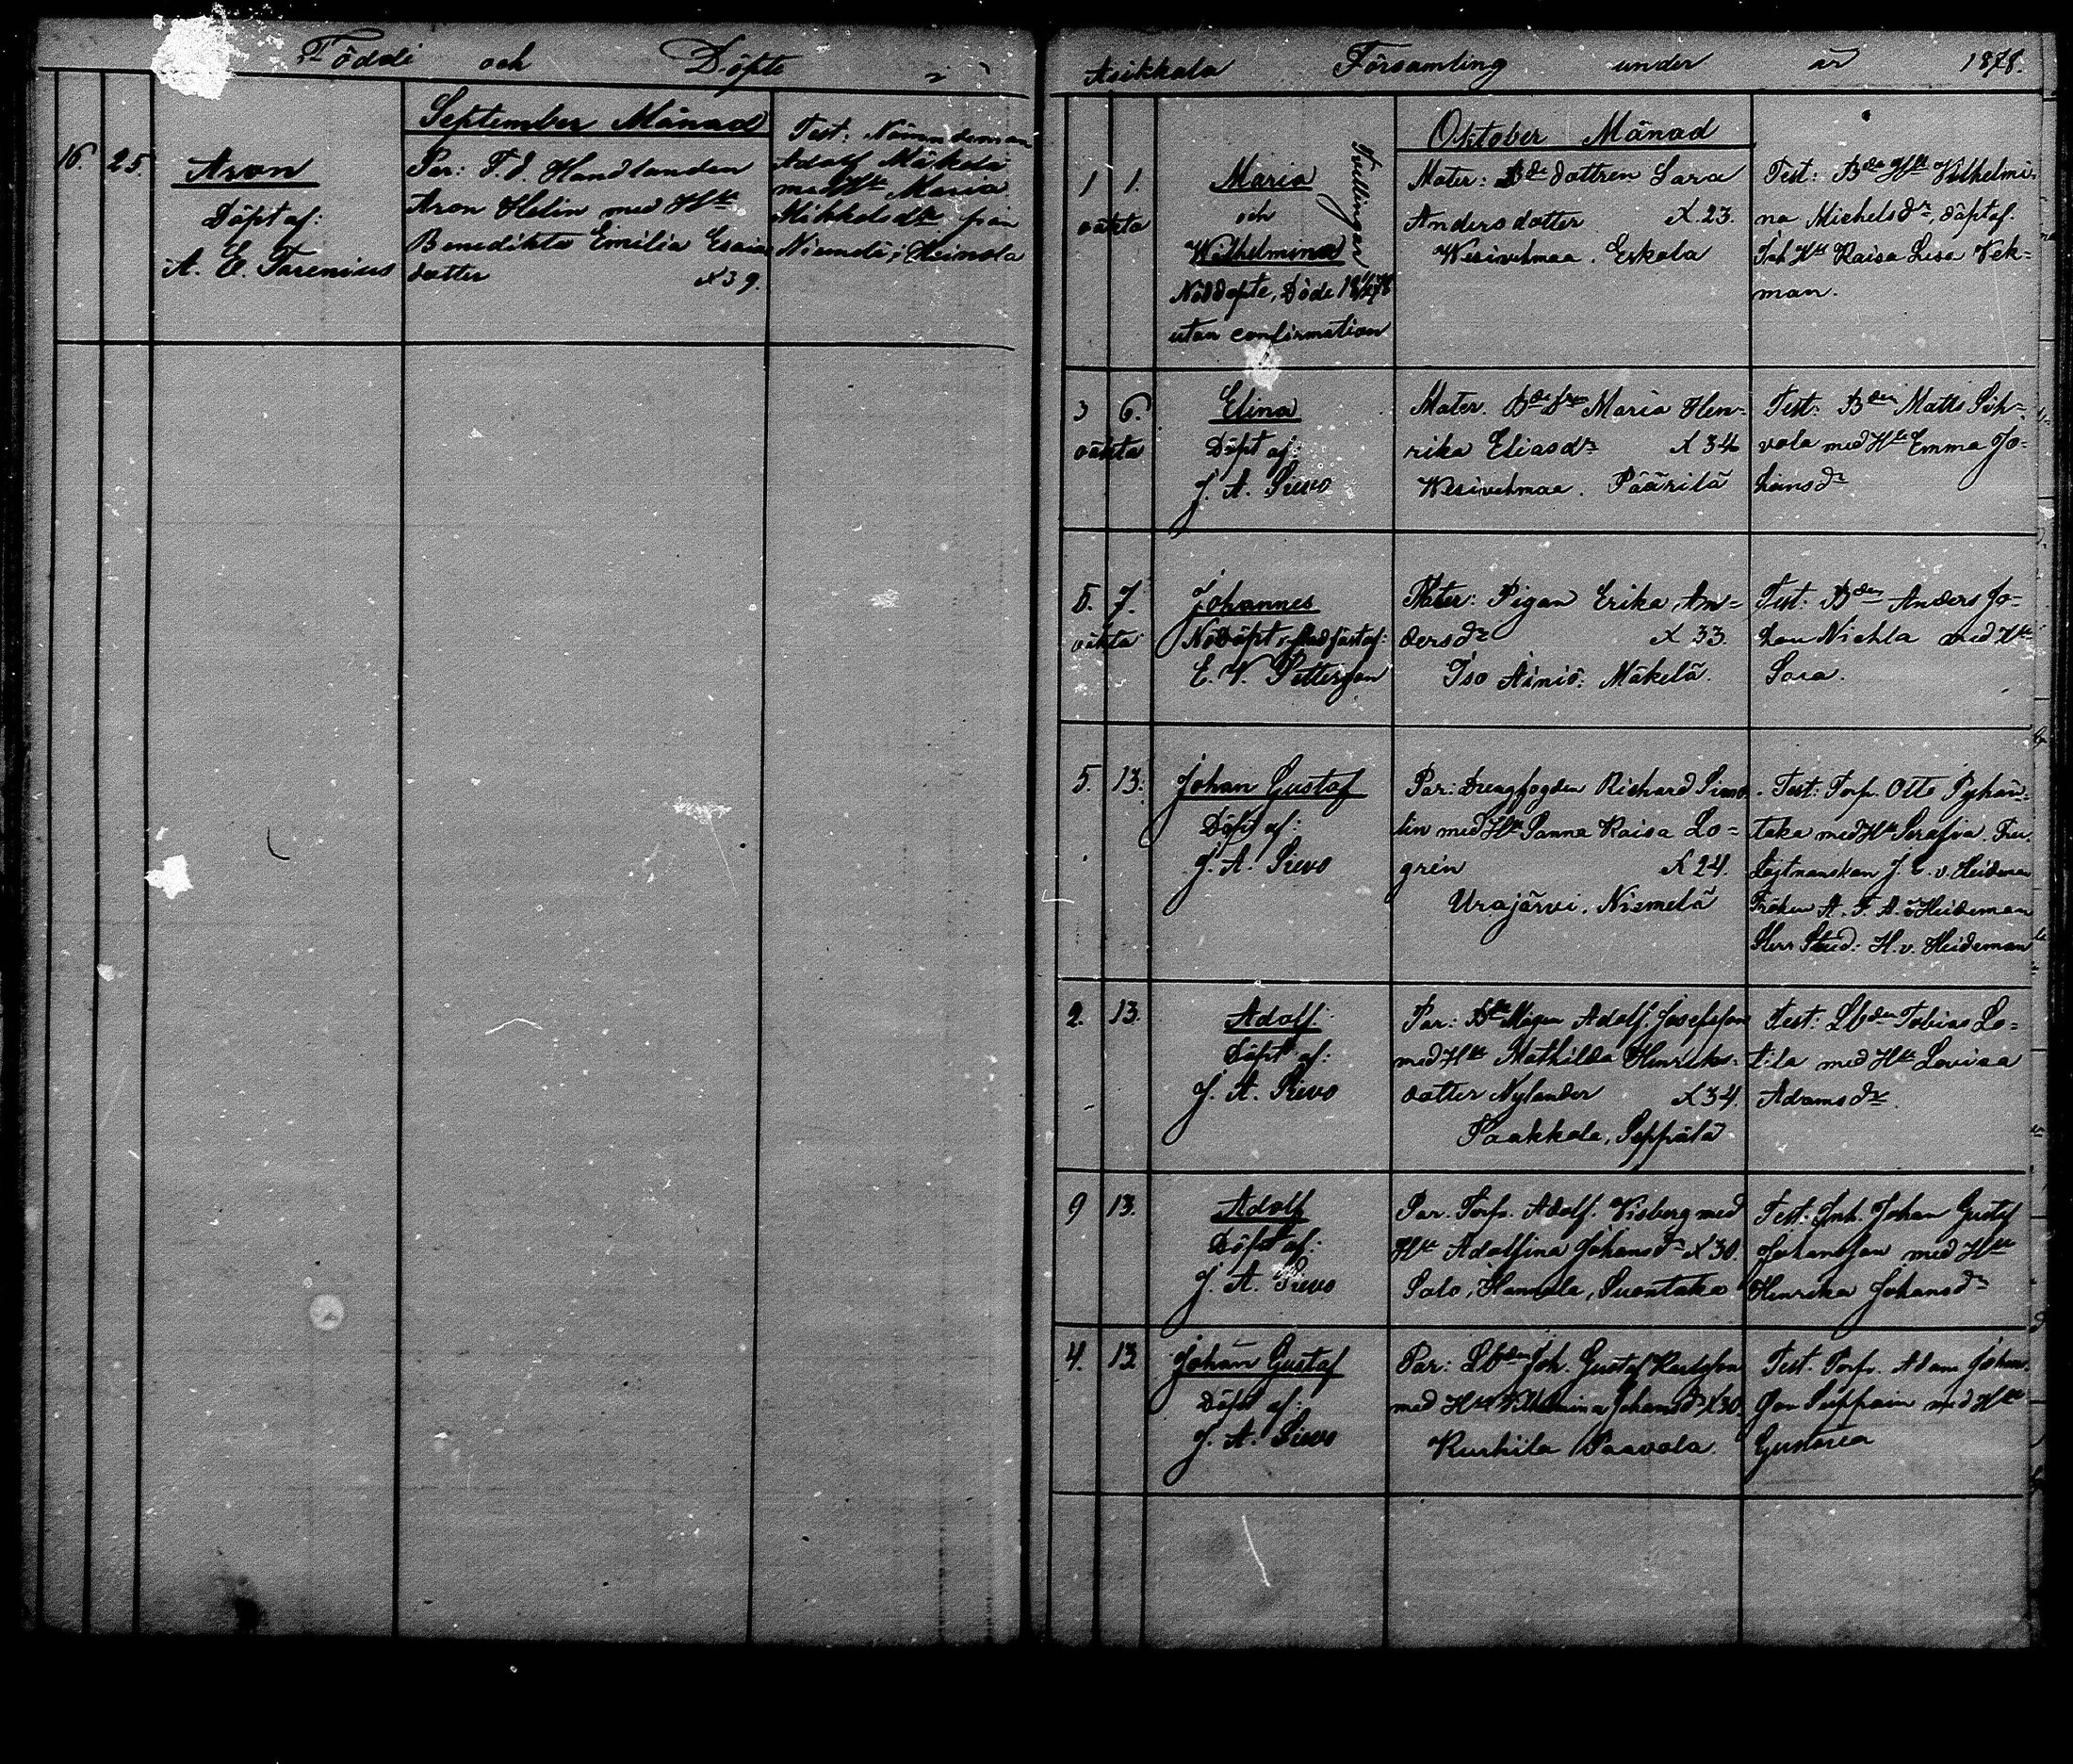 Födde och Döpte i
September Månad
16. 25.
Aron
Döpt af:
A. E. Tarenius
Par: F. d. Handlanden
Aron Helin med Hu
Benedikta Emilia Esaia
dotter x 39.
Test: Nämndeman
Adolf Mäkelä
med Hu Maria
Mikkelsdr från
Niemelä, Heinola
Asikkala Församling under år 1878.
Oktober Månad
1 1.
oäkta
Maria
och
Wilhelmina
Tvillingar
Nöddöpte, Döde
utan confirmation
Mater: Bde dottren Sara
Andersdotter x. 23.
Wesivehmaa. Erkola
Test: Bde Hu Vilhelmi-
na Michelsdr, döpt af:
Inh Hu Kaisa Lisa Vek=
man.
3 6.
oäkta
Elina
Döpt af:
J. A. Sievo
Mater. Maria Hen-
rika Eliasdr x 34
Wesivehmaa. Päärilä
Test: Bden Matts Sih-
vola med Hu Emma Jo-
hansdr
5. 7.
oäkta
Johannes
Nöddöpt,
E. V. Petterson
Mater: Pigan Erika An=
dersdr x 33.
Iso Äiniö. Mäkelä.
Test: Bden Anders Jo=
han Niehla med Hu
Sara.
5. 13.
Johan Gustaf
Döpt af:
J. A. Sievo
Par: Drengfogden Richard Simo
lin med Hu Sanna Kaisa Lo=
gren x 24.
Urajärvi. Niemelä
Test: Torp. Otto Pyhän=
taka med Hu Serafia. Fru.
Löjtnanskan J. C. v. Heideman
Fröken A. F. A. v Heideman
Herr Stud: H. v. Heideman
2. 13.
Adolf.
Döpt af:
J. A. Sievo
Par: Bde Mågen Adolf. Josefsson
med Hu Mathilda Henriks-
dotter Nylander x 34.
Paakkola, Seppälä.
Test: Lbden Tobias Lo=
tila med Hu Lovisa
Adamsdr.
9 13.
Adolf
Döpt af:
J. A. Sievo
Par. Torp. Adolf. Visberg med
Hu Adolfina Johansdr x 30.
Salo, Hannula, Suontaka
Test: Inh. Johan Gustaf
Johansson med Hu
Henrika Johansdr
4. 13
Johan Gustaf
Döpt af:
J. A. Sievo
Par: Lbden Joh. Gustaf Karlsson
med Hu Vilhelmina Johansdr x 30.
Kurhila Paavola.
Test. Torp. Adam Johans
son Seppäin med Hu
Gustava